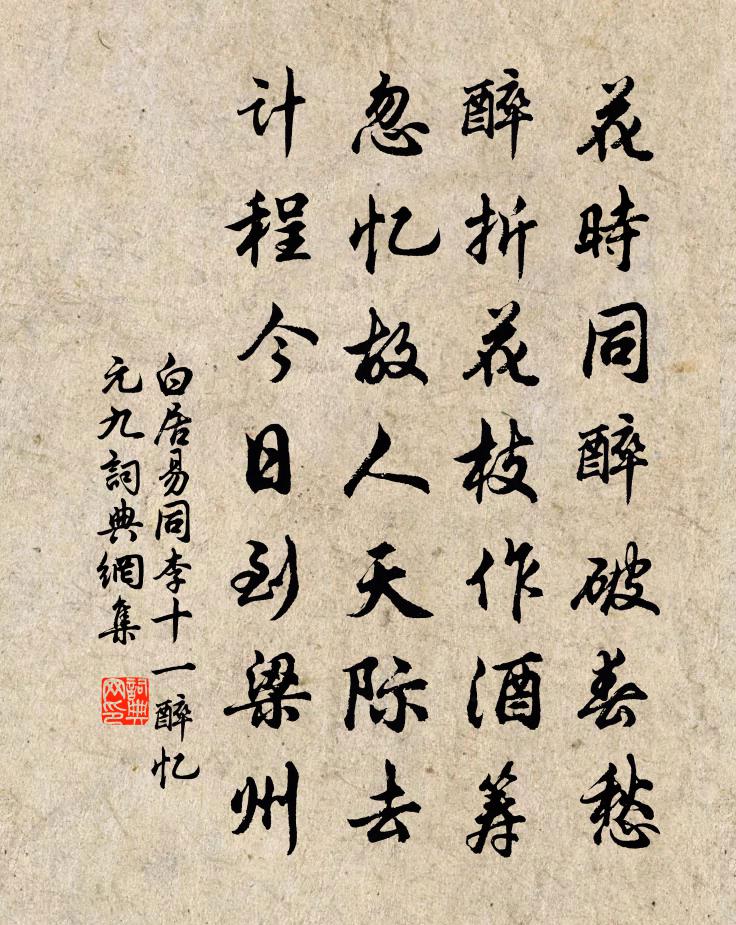 花時同醉破春愁
醉折花枝作酒筹
忽忆故人天际去
计程今日到梁州
白居易同李十一醉忆
元九詞典網集
詞典
网印